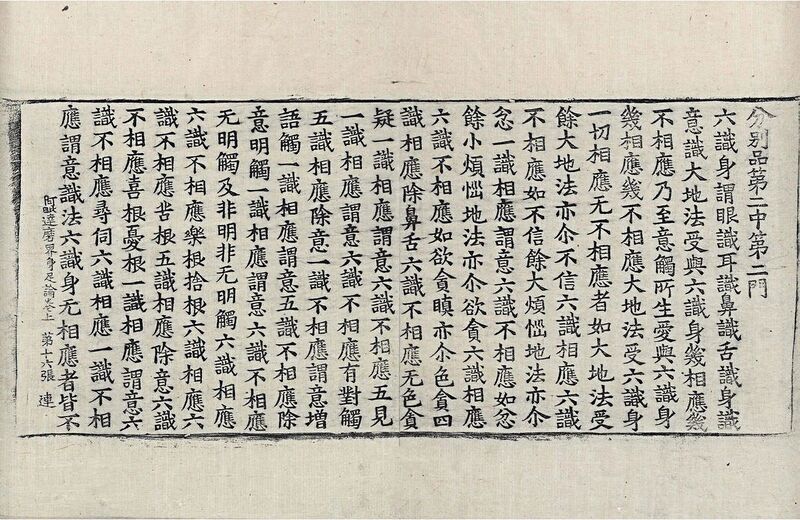 分別品第二中第二門
六識身謂眼識耳識鼻識舌識身識
意識大地法受與六識身幾相應幾
不相應乃至意觸所生愛與六識身
幾相應幾不相應大地法受六識身
一切相應无不相應者如大地法受
餘大地法亦尒不信六識相應六識
不相應如不信餘大煩惱地法亦尒
忿一識相應謂意六識不相應如忿
餘小煩惱地法亦尒欲貪六識相應
六識不相應如欲貪瞋亦尒色貪四
識相應除鼻舌六識不相應无色貪
疑一識相應謂意六識不相應五見
一識相應謂意六識不相應有對觸
五識相應除意一識不相應謂意增
語觸一識相應謂意五識不相應除
意明觸一識相應謂意六識不相應
无明觸及非明非无明觸六識相應
六識不相應樂根捨根六識相應六
識不相應苦根五識相應除意六識
不相應喜根憂根一識相應謂意六
識不相應尋伺六識相應一識不相
應謂意識法六識身无相應者皆不
阿毗達磨界身足論卷上 第十六張 連